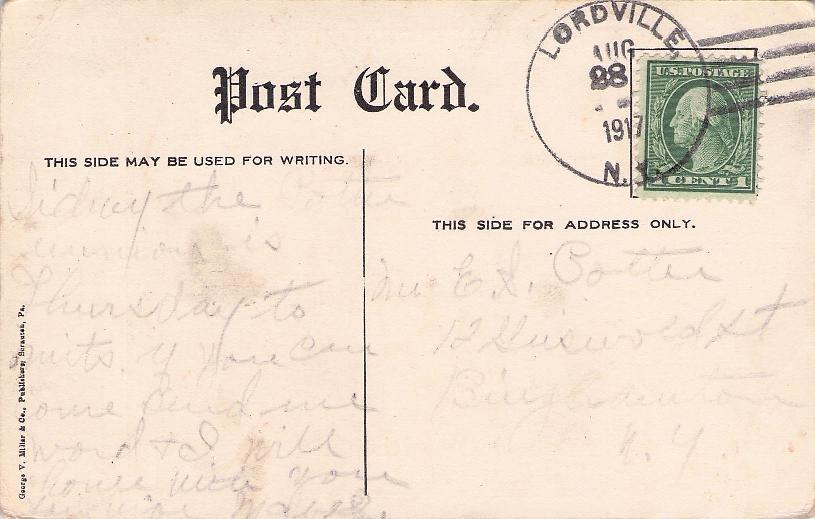 Post Card.
LORDVILLE,
AUG
28
1917
N.Y.
U.S.POSTAGE
1 CENT 1
THIS SIDE MAY BE USED FOR WRITING.
THIS SIDE FOR ADDRESS ONLY.
Sidney the Potter
is
Thursday to
if you can
come send me
word & I will
you
George V. Millar & Co., Publishers, Scranton, Pa.
Mr E. S. Potter
12 Griswold St
Binghamton
N. Y.